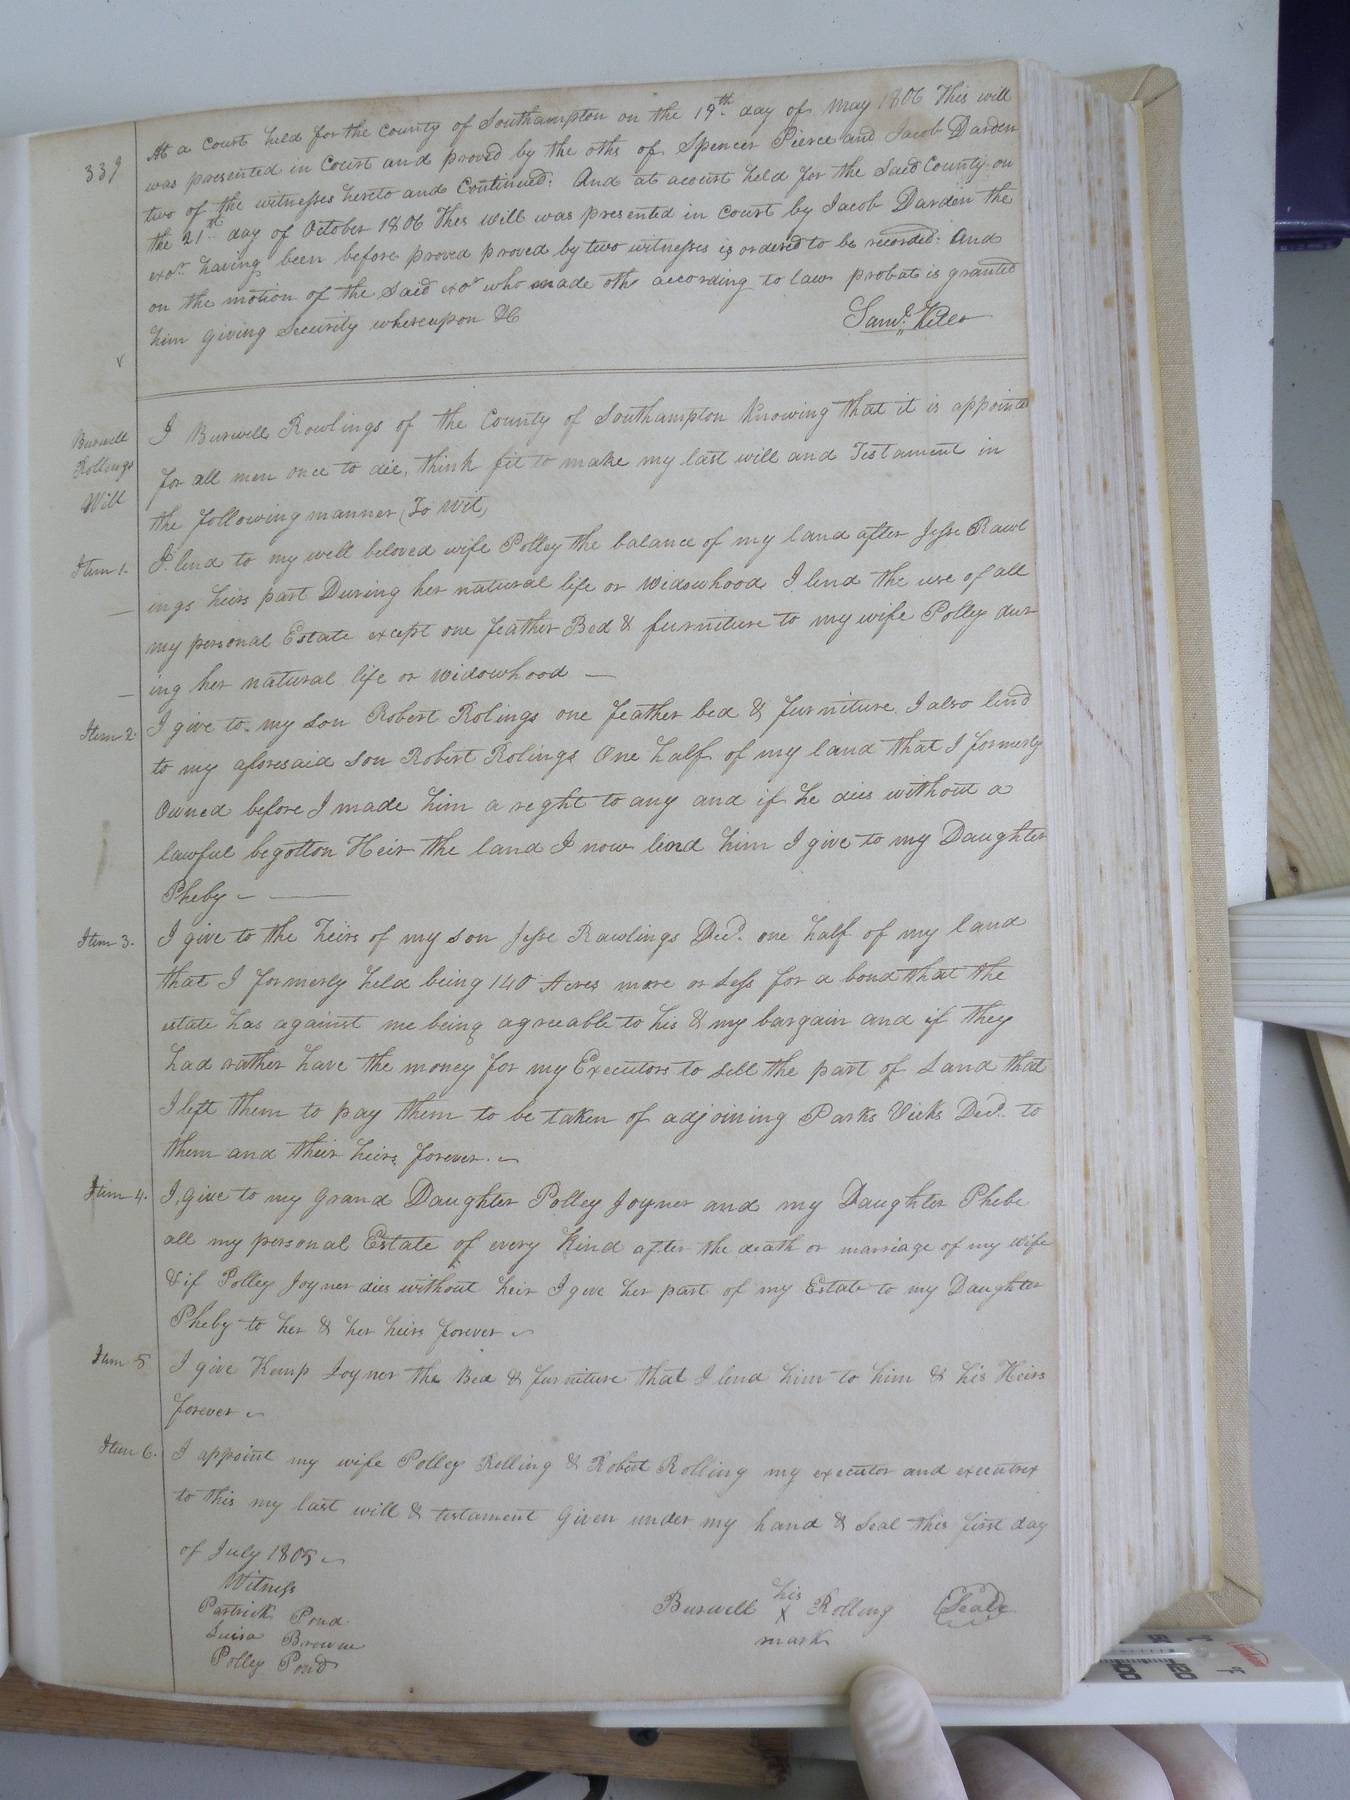 339
At a Court held for the County of Southampton on the 19th day of May 1806 This will
was presented in Court and proved by the oths of Spencer Pierce and Jacob Darden
two of the witnesses hereto and Continued. And at acourt held for the Said County on
the 21st day of October 1806 This will was presented in Court by Jacob Darden the
exor. having been before proved proved by two witnesses is ordered to be recorded. And
on the motion of the Said exor who made oths according to law probat is granted
him giving Security whereupon &C
Saml.
Burwell
Rollings
Will
I Burwell Rowlings of the County of Southampton Knowing that it is appointed
for all men once to die, think fit to make my last will and Testament in
the following manner (To wit)
Item 1. I lend to my well beloved wife Polley the balance of my land after Jesse Rawl
ings heirs part During her natural life or widowhood I lend the use of all
my personal Estate except one feather Bed & furniture to my wife Polley dur
ing her natural life or widowhood —
Item 2. I give to my son Robert Rolings one feather bed & furniture I also lend
to my aforesaid son Robert Rolings One half of my land that I formerly
Owned before I made him a reght to any and if he dies without a
lawful begotton Heir the land I now lend him I give to my Daughter
Pheby — —
Item 3. I give to the heirs of my son Jesse Rawlings Decd. one half of my land
that I formerly held being 140 Acres more or Less for a bond that the
estate has against me being agreeable to his & my bargain and if they
had rather have the money for my Executors to Sell the part of Land that
I left them to pay them to be taken of adjoining Parks Vicks Decd. to
them and their heirs forever.
Item 4. I give to my Grand Daughter Polley Joyner and my Daughter Phebe
all my personal Estate of every Kind after the death or marriage of my wife
& if Polley Joyner dies without heir I give her part of my Estate to my Daughter
Pheby to her & her heirs forever
Item 5 I give Kemp Joyner the Bed & furniture that I lend him to him & his Heirs
forever
Item 6. I appoint my wife Polley Rolling & Robert Rolling my executor and executrix
to this my last will & testament Given under my hand & Seal this first day
of July 1805
Witness
Partrick Pond
Browne
Polley Pond
his
Burwell X Rolling Seal
mark